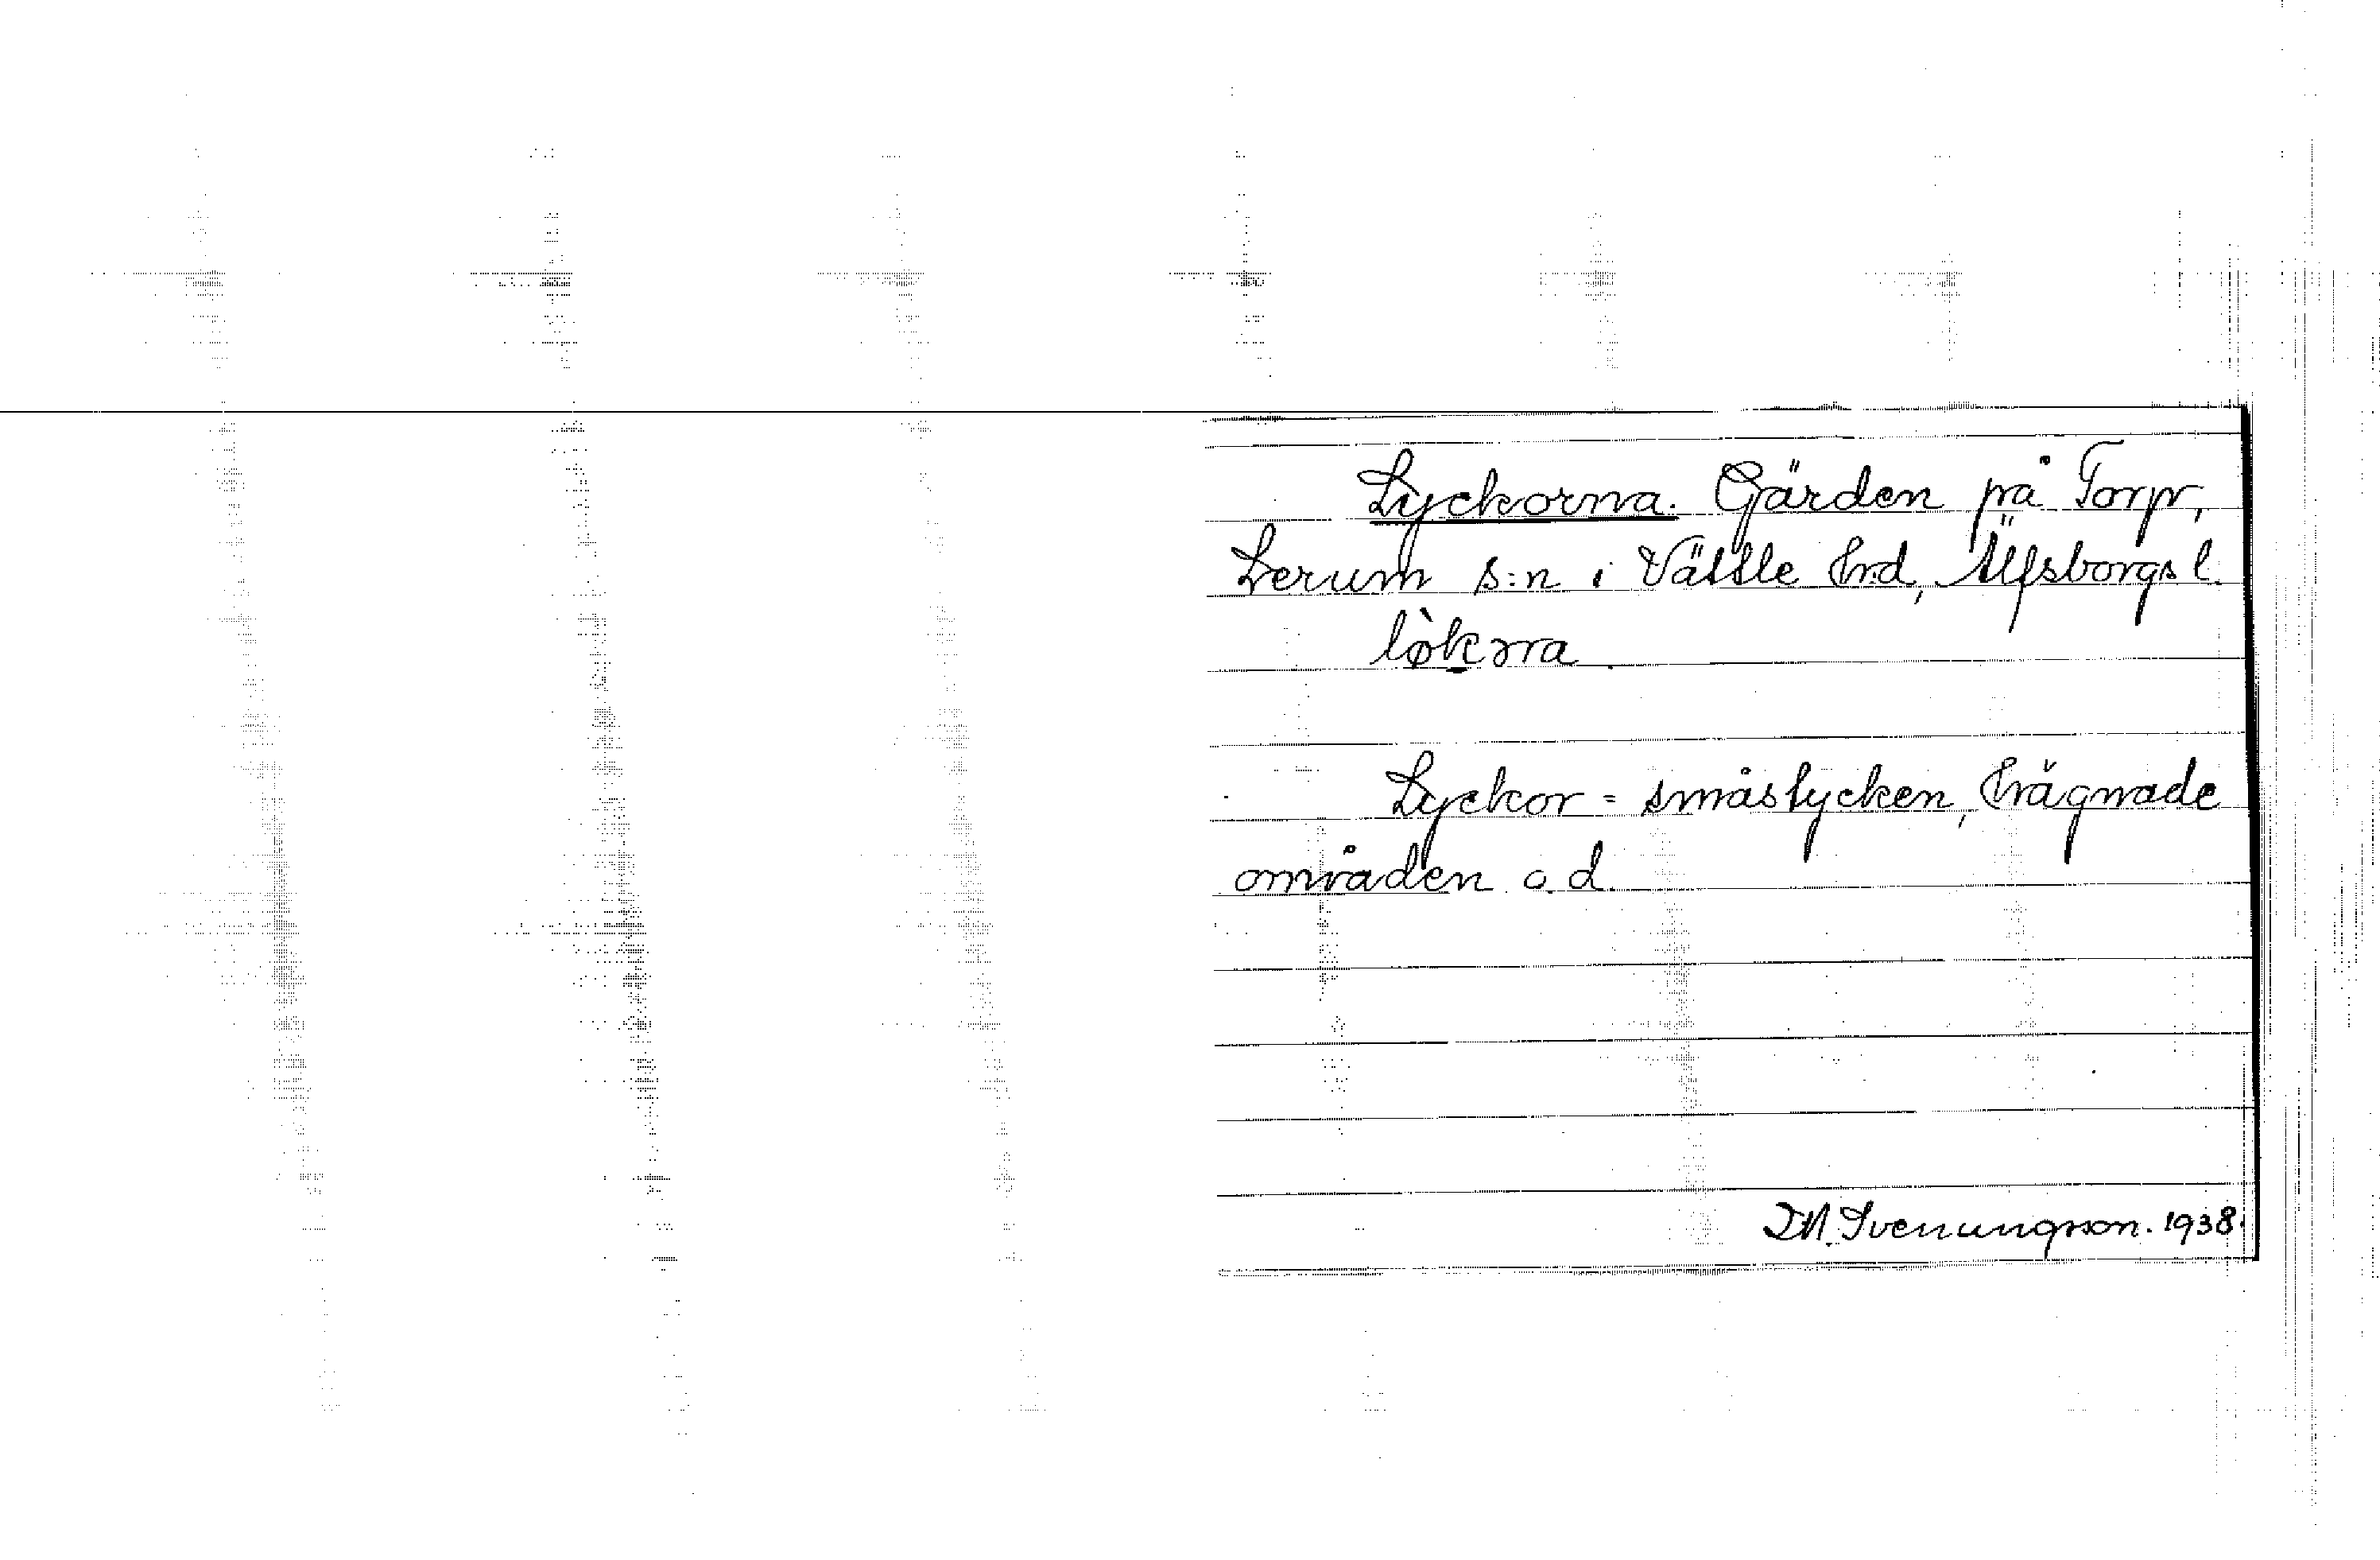 Lyckorna. Gärden på Torp,
Lerum s:n i Vättle hrd, Älfsborgs l.
lø̀kɔrra
Lyckor = småstycken, hägnade
områden o.d.
D.A. Svenungsson. 1938.